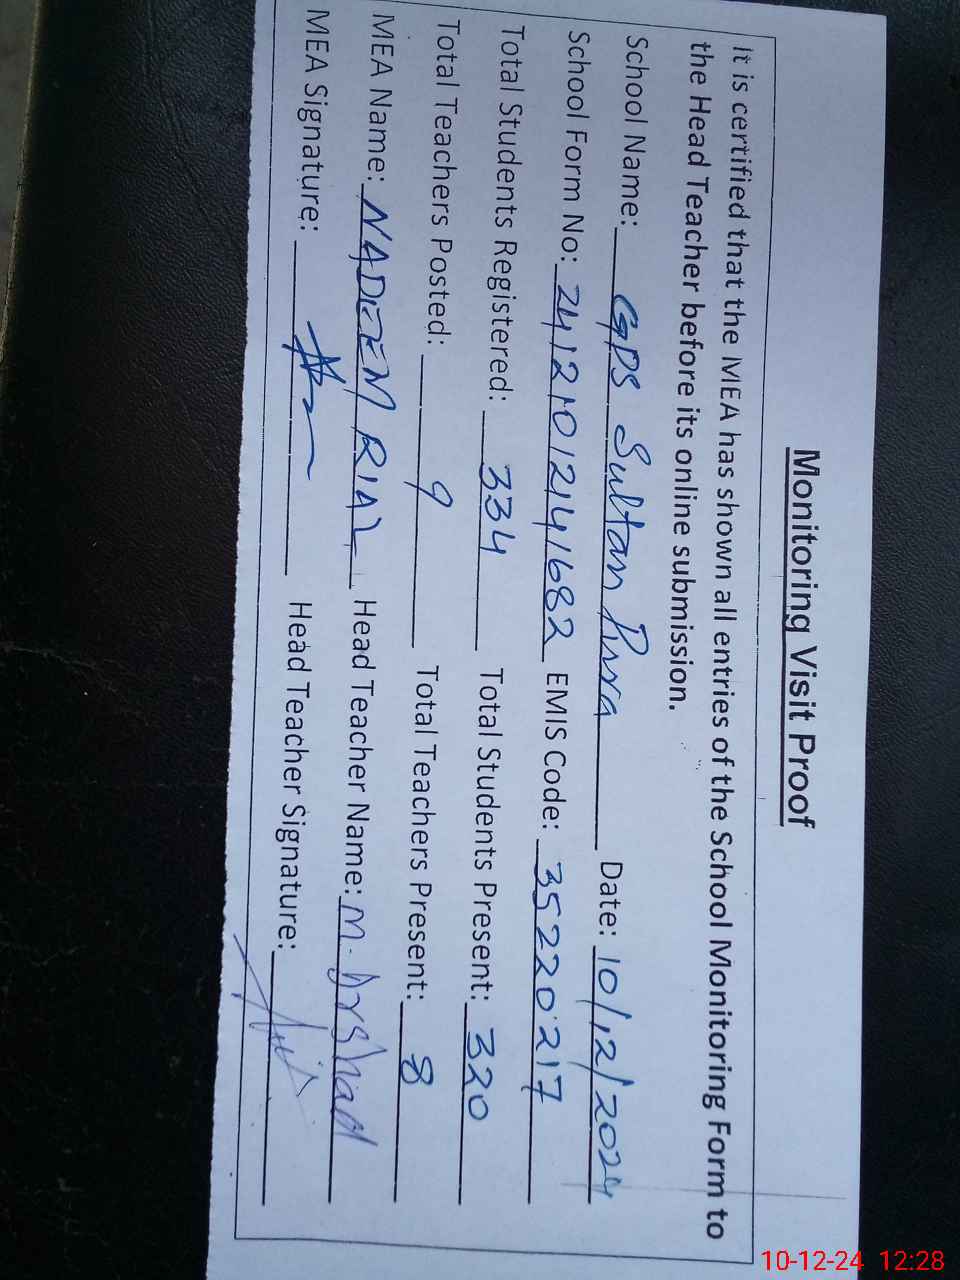 Monitoring Visit Proof
It is certified that the MEA has shown all entries of the School Monitoring Form to
the Head Teacher before its online submission.
School Name: GPS Sultan Pura Date: 10/12/2024
School Form No: 241210121241682 EMIS Code: 35220217
Total Students Registered: 334 Total Students Present: 320
Total Teachers Posted: 9 Total Teachers Present: 8
MEA Name: NADEEM RIAZ Head Teacher Name: M. Arshad
MEA Signature: Head Teacher Signature:
10-12-24 12:28